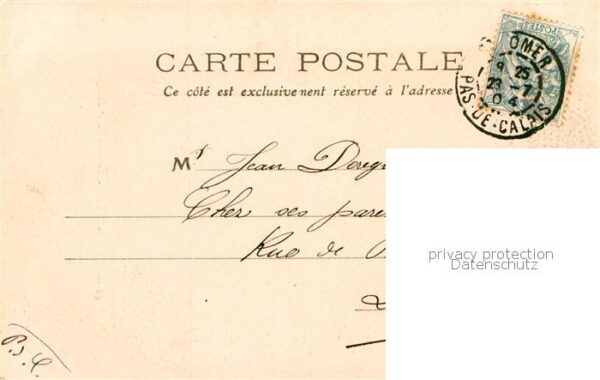 CARTE POSTALE
Ce côté est exclusivement réservé à l'adresse
POSTES
OMER
8 25
23 -7
04
PAS-DE-CALAIS
M Jean
Chez ses
Rue de
privacy protection
Datenschutz